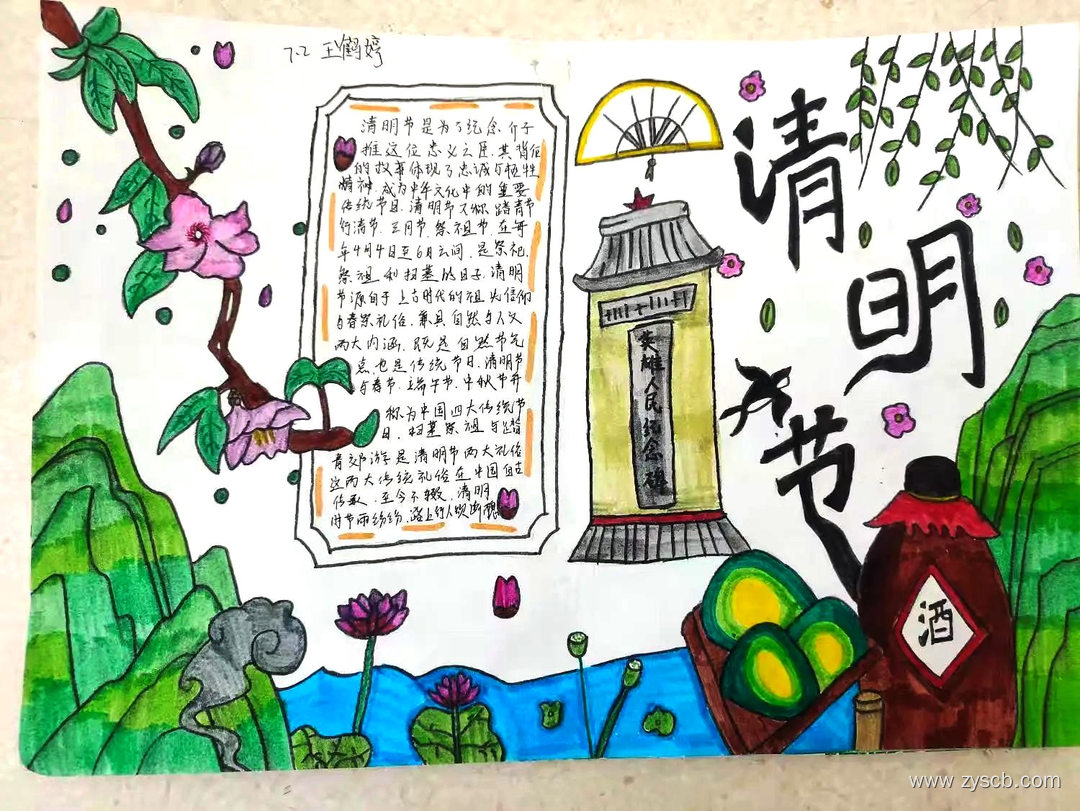 7.2 王鹤婷
清明节是为了纪念介子
推这位忠义之臣,其背后
的故事体现了忠诚与牺牲
精神,成为中华文化中的重要
传统节日,清明节又称踏青节
行清节、三月节、祭祖节,在每
年4月4日至6日之间,是祭祀、
祭祖和扫墓的日子,清明
节源自于上古时代的祖先信仰
与春祭礼俗,兼具自然与人文
两大内涵,既是自然节气
点也是传统节日,清明节
与春节、端午节、中秋节并
称为中国四大传统节
日,扫墓祭祖与踏
青郊游是清明节两大礼俗
这两大传统礼俗在中国自古
传承,至今不辍,清明
时节雨纷纷,路上行人欲断魂
英雄人民纪念碑
清明节
酒
www.zyscb.com